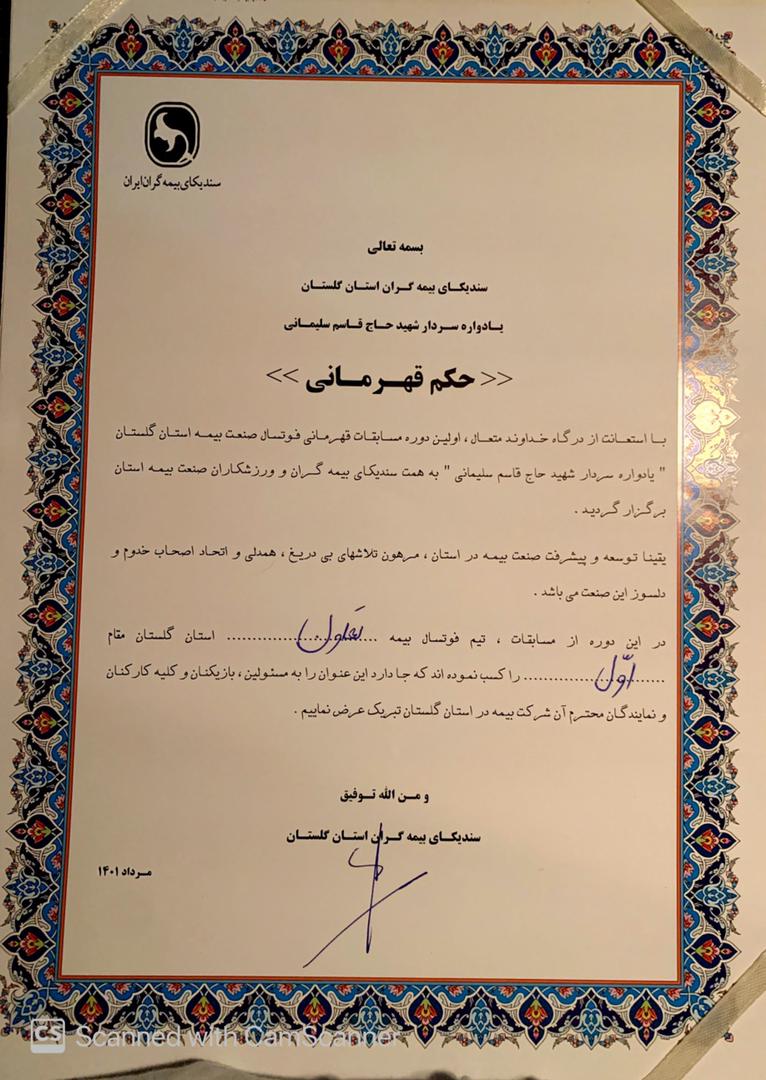 سندیکای بیمه گران ایران
بسمه تعالی
سندیکـای بیمه گـران استـان گلستـان
یـادواره سـردار شهید حـاج قـاسم سلیمـانی
<< حکم قهـرمـانی >>
بـا استعـانت از درگـاه خـداونـد متعـال ، اولیـن دوره مسـابقـات قهرمـانی فـوتسـال صنعت بیمـه استـان گلستـان
" یادواره سردار شهید حاج قاسم سلیمانی " به همت سندیکای بیمه گـران و ورزشکاران صنعت بیمـه استان
برگزار گردید .
یقینـا تـوسعه و پیشرفت صنعت بیمـه در استان ، مـرهون تلاشهای بی دریـغ ، همدلی و اتحـاد اصحـاب خدوم و
دلسوز این صنعت می باشد .
در این دوره از مسابقات ، تیم فوتسال بیمه ............ استان گلستان مقام
اوّل را کسب نموده اند که جا دارد این عنوان را به مسئولین ، بازیکنان و کلیه کارکنان
و نمایندگان محترم آن شرکت بیمه در استان گلستان تبریک عرض نماییم .
و مـن الله تـوفیق
سندیکـای بیمه گـران استـان گلستـان
مـرداد ۱۴۰۱
CS Scanned with CamScanner